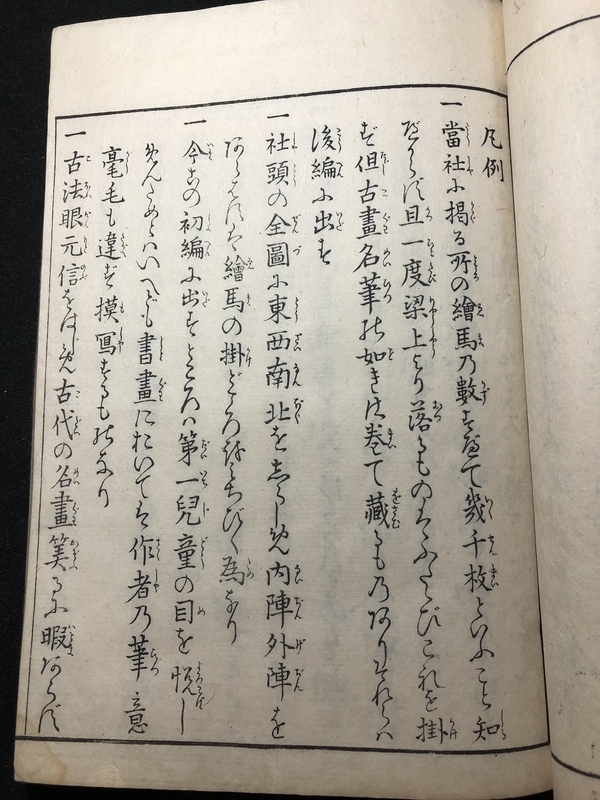 凡例
一當社に掲る所の繪馬の數すべて幾千枚といふこと知
べからず且一度梁上より落るものはふたゝびこれを掛
ず但古畫名筆の如きは巻て藏るものありそれらは
後編に出す
一社頭の全圖に東西南北をしらしめ内陣外陣を
あらはすは繪馬の掛どころをみちびく為なり
一今この初編に出すところは第一兒童の目を悦し
めんためとはいへども書畫においては作者の筆意
毫毛も違ず摸冩するものなり
一古法眼元信をはじめ古代の名畫筭るに暇あらず